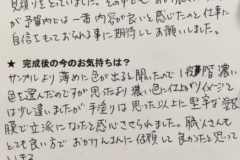 見積りをとっていました。その中でも
が予算内では一番内容が良いと感じたのと仕事に
自信をもっておられる事に期待してお願いしました。
★ 完成後の今のお気持ちは？
サンプルより薄めた色が出ると聞いたので1段階濃い
色を選んだのですが思ったより濃い色に仕上がりイメージと
は少し違いましたが手塗りは思った以上に堅牢な塗
膜で立派になったと感じさせられました。職人さんも
とても良い方でおかげさんに信頼して良かったと思って
います。